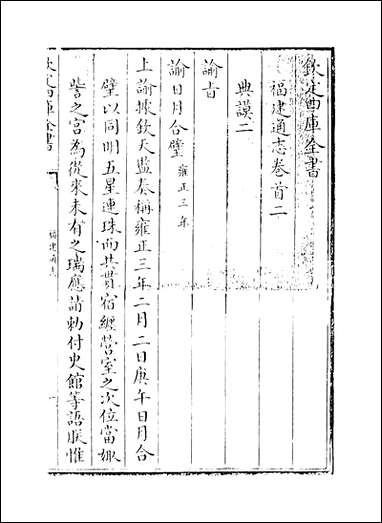 欽定四庫全書
福建通志卷首二
典謨二
諭旨
諭日月合璧雍正三年
上諭據欽天監奏稱雍正三年二月二日庚午日月合
璧以同明五星連珠而共貫宿纏營室之次位當娵
訾之宮為從來未有之瑞應請勅付史館等語朕惟
欽定四庫全書
福建通志